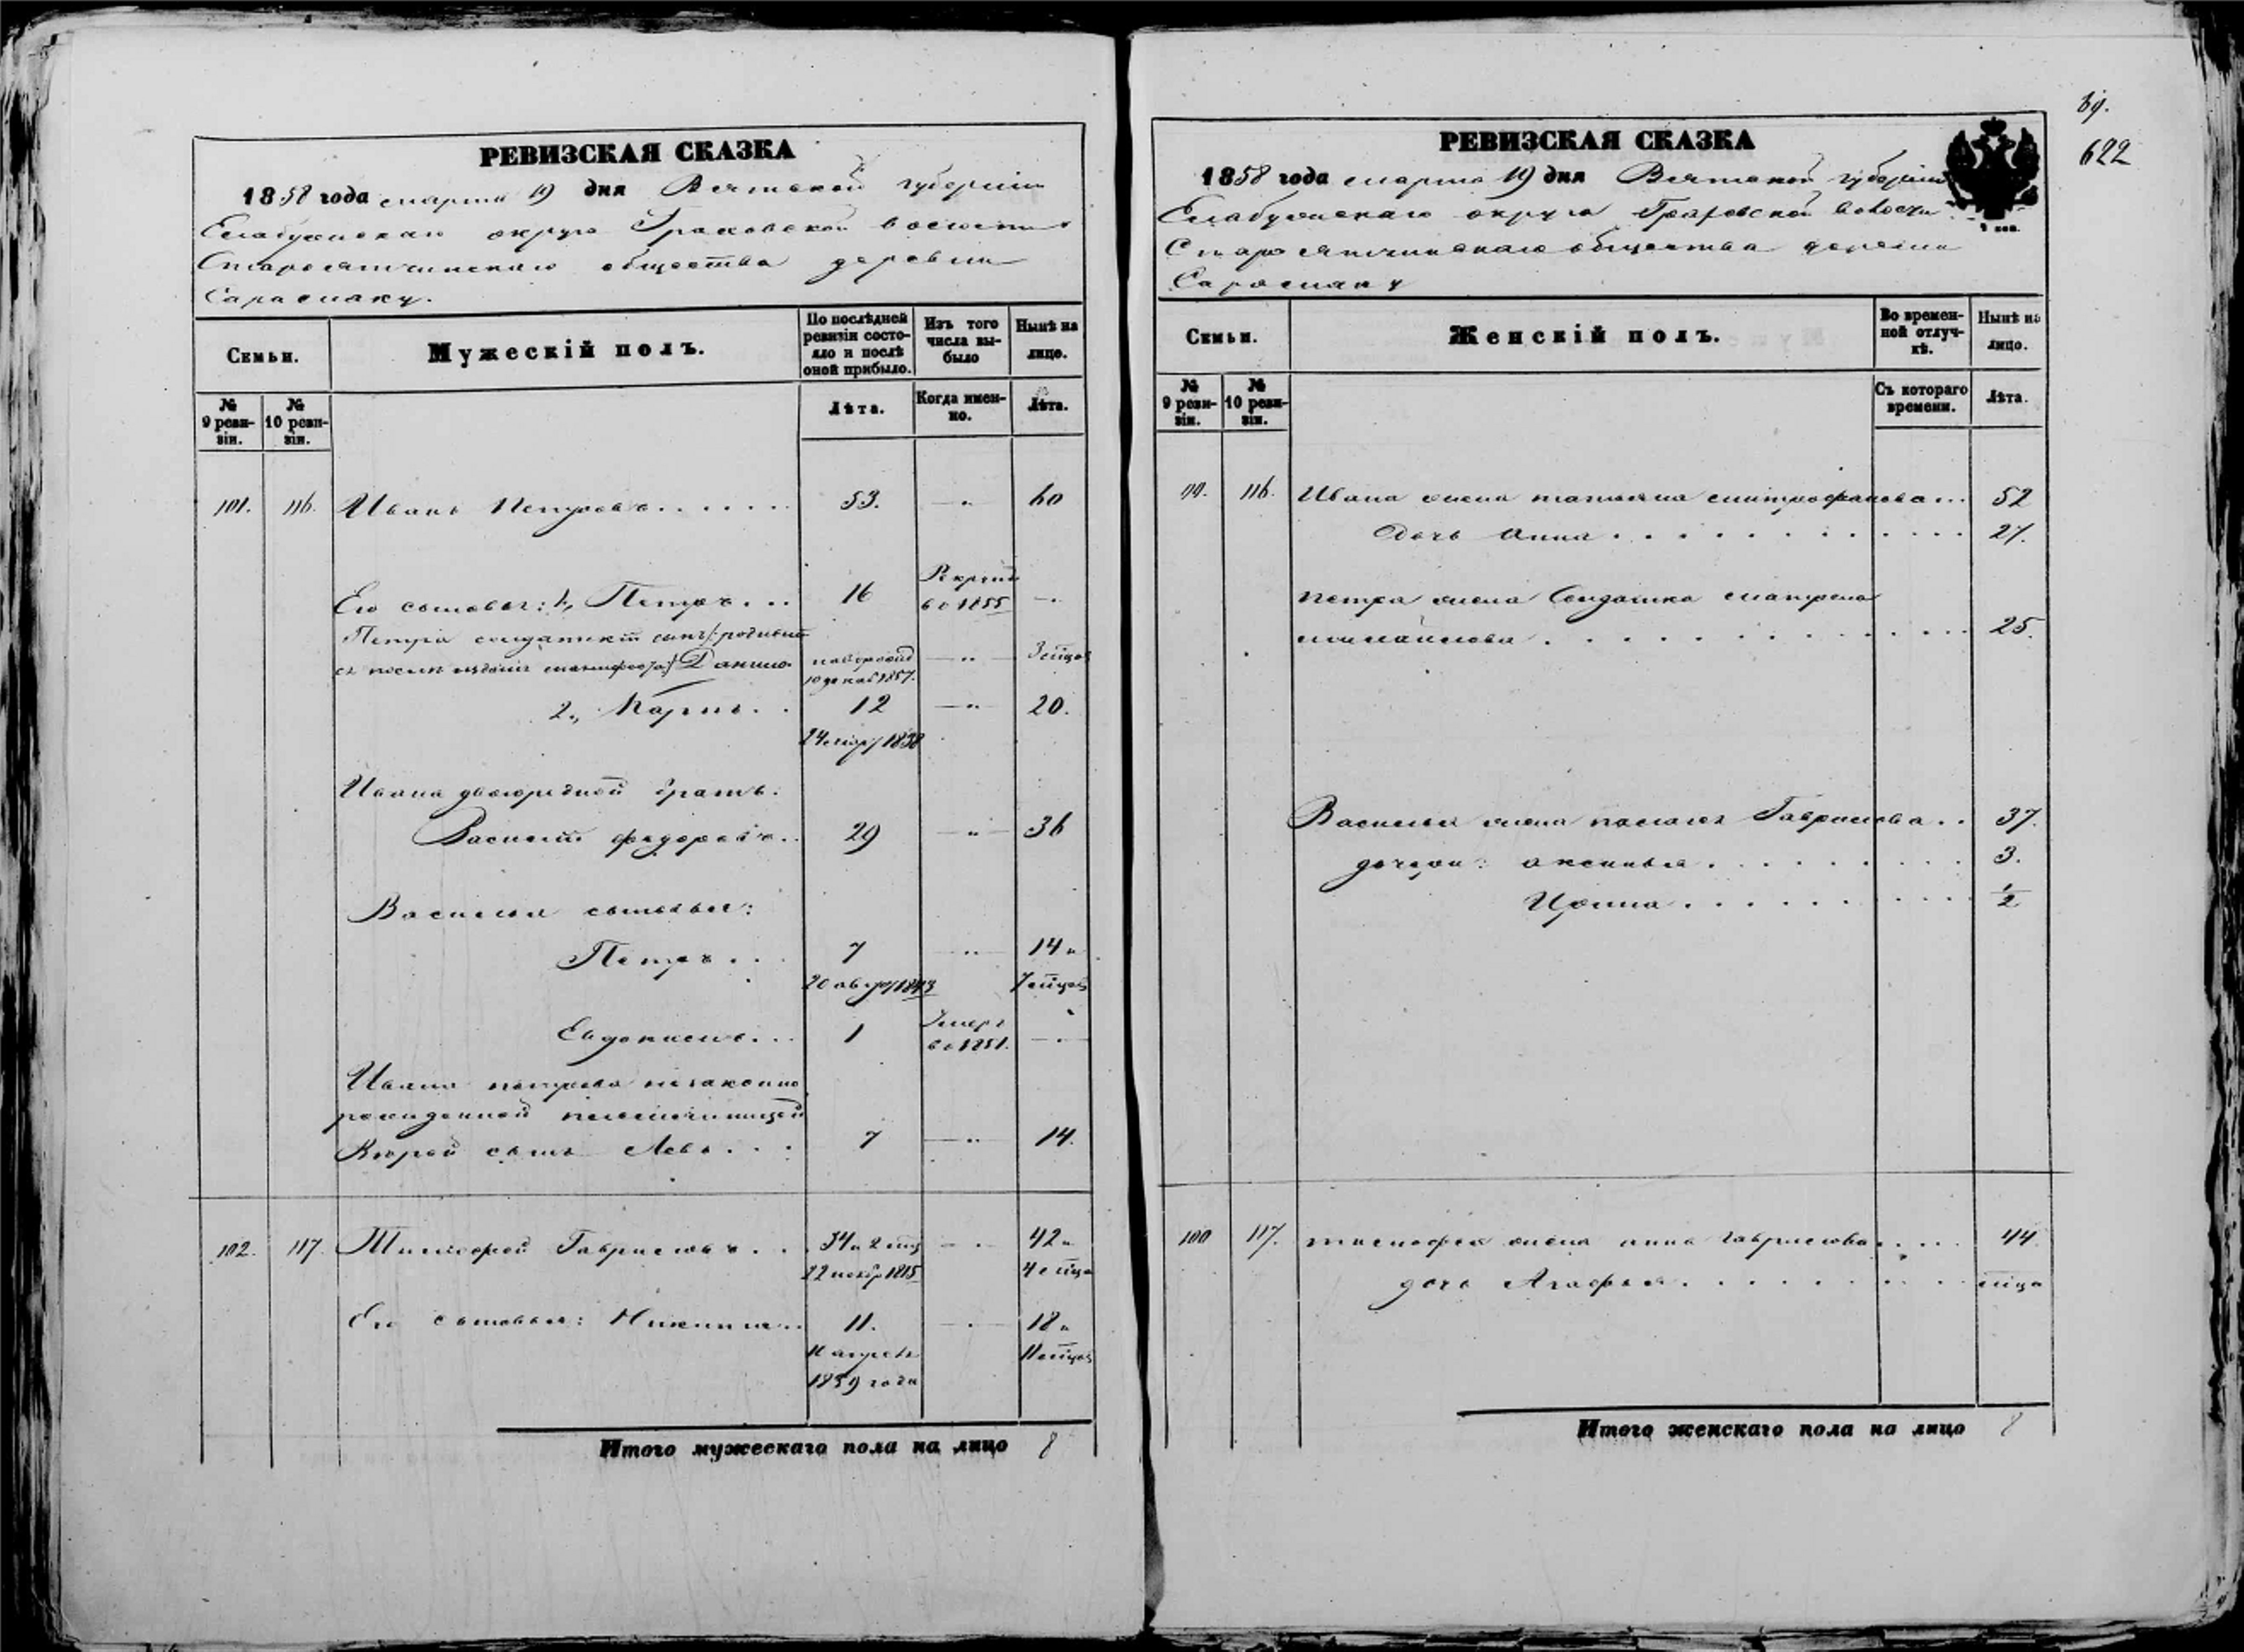 РЕВИЗСКАЯ СКАЗКА
1858 года марта 19 дня Вятской губернии
Елабужскаго округа Граховской волости
Староятчинскаго общества деревни
Сарамаку.
Семьи.
Мужескій полъ.
По послѣдней ревизіи состояло и послѣ оной прибыло.
Изъ того числа выбыло
Нынѣ на лицо.
№ 9 ревизіи.
№ 10 ревизіи.
Лѣта.
Когда именно.
Лѣта.
101. 116. Иванъ Петровъ 53. 60
Его сыновья: 1, Петръ 16 Рекрут въ 1855
Петра солдатскій сынъ /: родивш
ся послѣ изданія манифеста :/ Данило 3 мцов
10 декаб 1857.
2., Карпъ 12 20.
24 мар 1838
Ивана двоюродной братъ:
Василій Федоровъ 29 36
Василья сыновья:
Петръ 7 14 и
20 авгу 1843 7 мцов
Евдокимъ 1 Умеръ въ 1851.
Ивана Петрова незаконно
рожденной
сынъ Левъ 7 14.
102. 117. Тимофей Гавриловъ 34 и 2 мц 42 и
22 нояб 1815 4 мца
Его сыновья: Никита 11. 18 и
11 апреля 11 мцов
1839 года
Итого мужескаго пола на лицо 8
69.
622
РЕВИЗСКАЯ СКАЗКА
1858 года марта 19 дня Вятской губерніи
Елабужскаго округа Граховской волости
Староятчинскаго общества деревни
Сарамаку
Семьи.
Женскій полъ.
Во временной отлучкѣ.
Нынѣ на лицо.
№ 9 ревизіи.
№ 10 ревизіи.
Съ котораго времени.
Лѣта.
99. 116. Ивана жена Татьяна Митрофанова 52
Дочь Анна 21.
Петра жена Солдатка Матрена
Михайлова 25.
Василья жена Гаврилова 37.
дочери: Аксинья 3.
Ирина 1/2
100 117. Тимофея жена Анна Гаврилова 44.
дочь Агафья мца
Итого женскаго пола на лицо 8